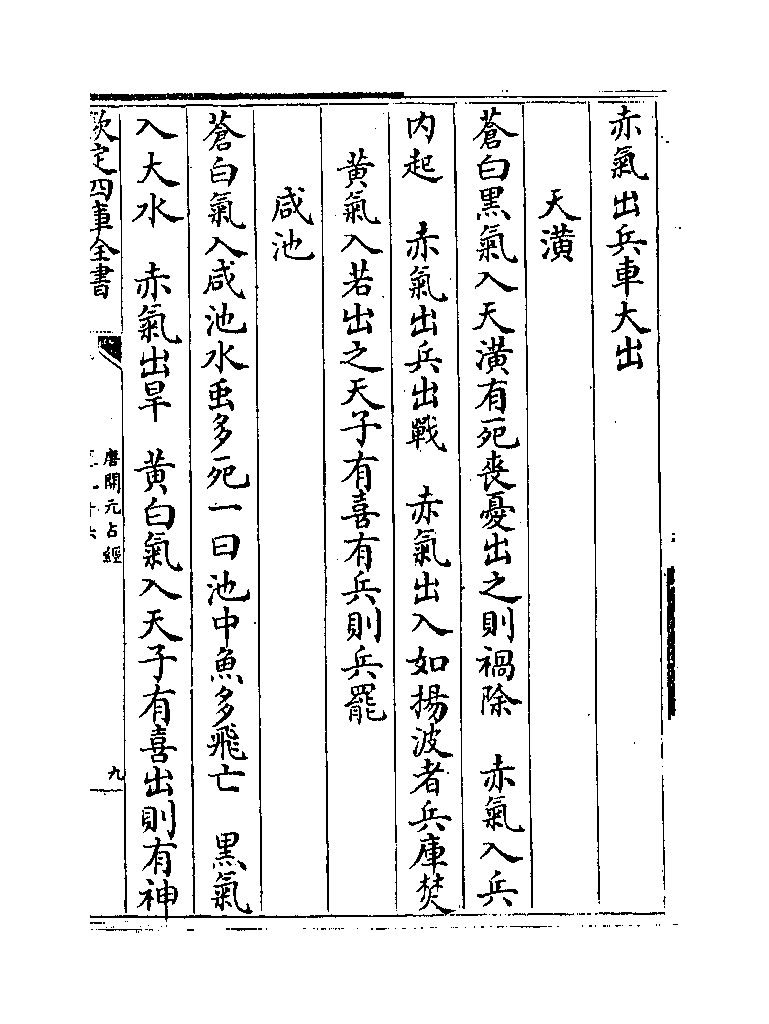 赤氣出兵車大出
天潢
蒼白黑氣入天潢有死喪憂出之則禍除　赤氣入兵
内起　赤氣出兵出戰　赤氣出入如揚波者兵庫焚
黄氣入若出之天子有喜有兵則兵罷
咸池
蒼白氣入咸池水䖝多死一曰池中魚多飛亡　黒氣
入大水　赤氣出旱　黄白氣入天子有喜出則有神
欽定四庫全書
唐開元占經
九